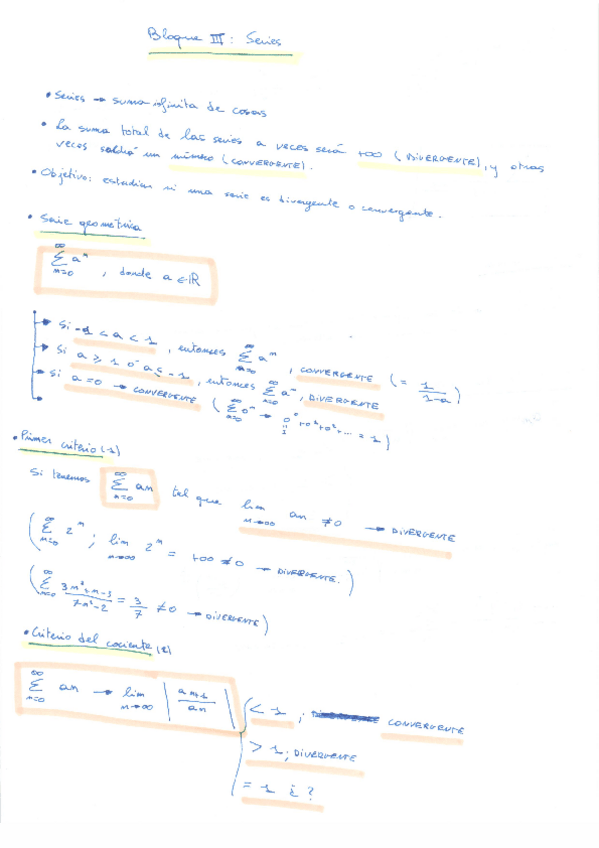 Bloque III: Series
• Series → suma infinita de cosas
• La suma total de las series a veces será +∞ (DIVERGENTE), y otras
veces saldrá un número (CONVERGENTE).
• Objetivo: estudiar si una serie es divergente o convergente.
• Serie geométrica
∞ Σ n=0 a^n , donde a ∈ ℝ
→ Si -1 < a < 1 , entonces ∞ Σ n=0 a^n , CONVERGENTE (= 1/(1-a))
→ Si a ≥ 1 o a ≤ -1 , entonces ∞ Σ n=0 a^n , DIVERGENTE
→ Si a = 0 → CONVERGENTE (∞ Σ n=0 0^n → 0^0 + 0^1 + 0^2 + ... = 1)
• Primer criterio (1)
Si tenemos ∞ Σ n=0 an tal que lim n→∞ an ≠ 0 → DIVERGENTE
(∞ Σ n=0 2^n ; lim n→∞ 2^n = +∞ ≠ 0 → DIVERGENTE.)
(∞ Σ n=0 (3n²+n-3)/(7n²-2) = 3/7 ≠ 0 → DIVERGENTE)
• Criterio del cociente (2)
∞ Σ n=0 an → lim n→∞ | an+1 / an | < 1 ; CONVERGENTE
> 1 ; DIVERGENTE
= 1 ¿?